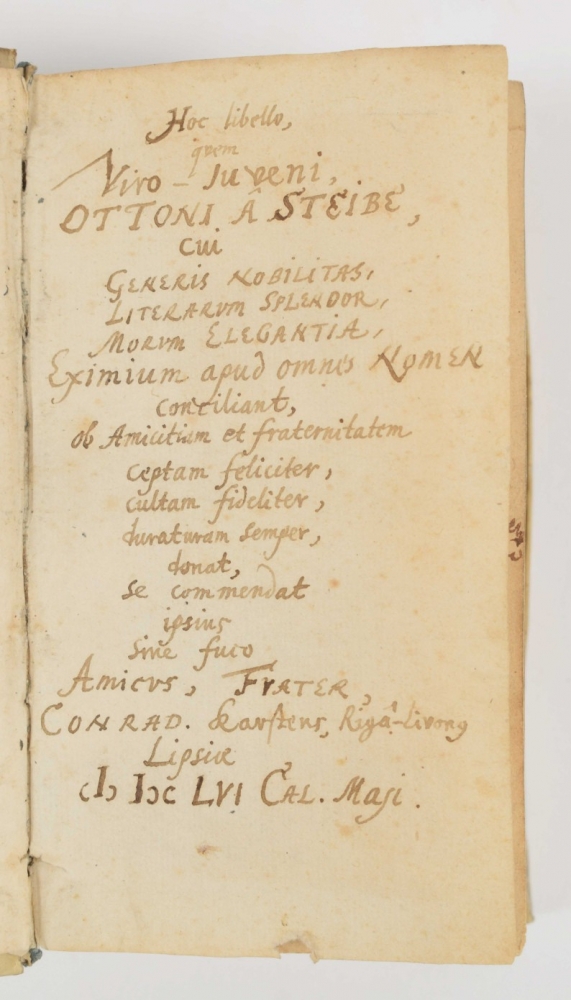 Hoc libello,
quem
Viro-Juveni,
OTTONI Â STEIBE,
CUI
GENERIS NOBILITAS,
LITERARVM SPLENDOR,
MORVM ELEGANTIA,
Eximium apud omnes NOMEN
conciliant,
ob Amicitiam et fraternitatem
ceptam feliciter,
cultam fideliter,
duraturam semper,
donat,
se commendat
ipsius
Sine fuco
AMICVS, FRATER,
CONRAD. Karstens, Rigâ-Livong
Lipsiæ
cIɔ Iɔc LVI CAL. Maji.